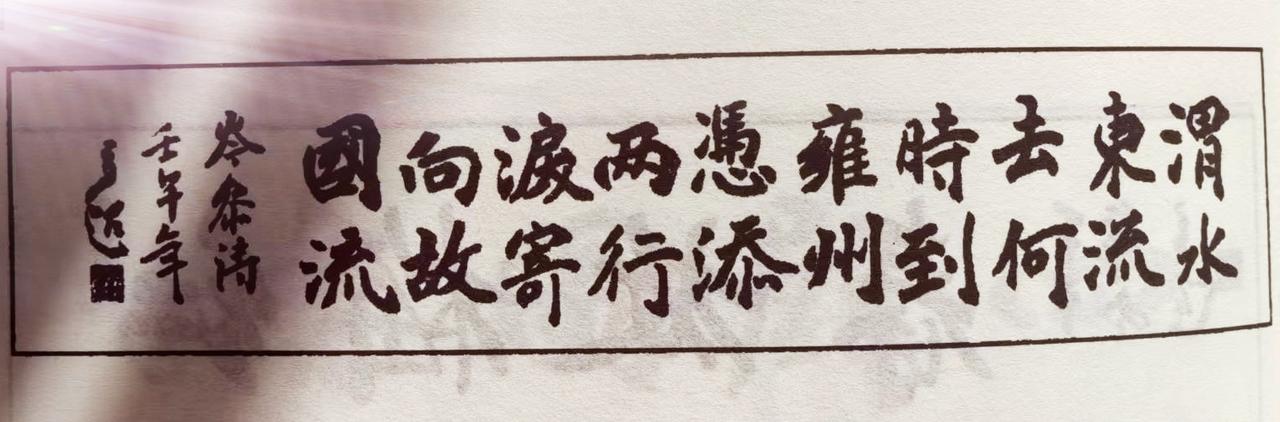 渭水
東流
去何
時到
雍州
憑添
两行
淚寄
向故
國流
岑参诗
壬午年